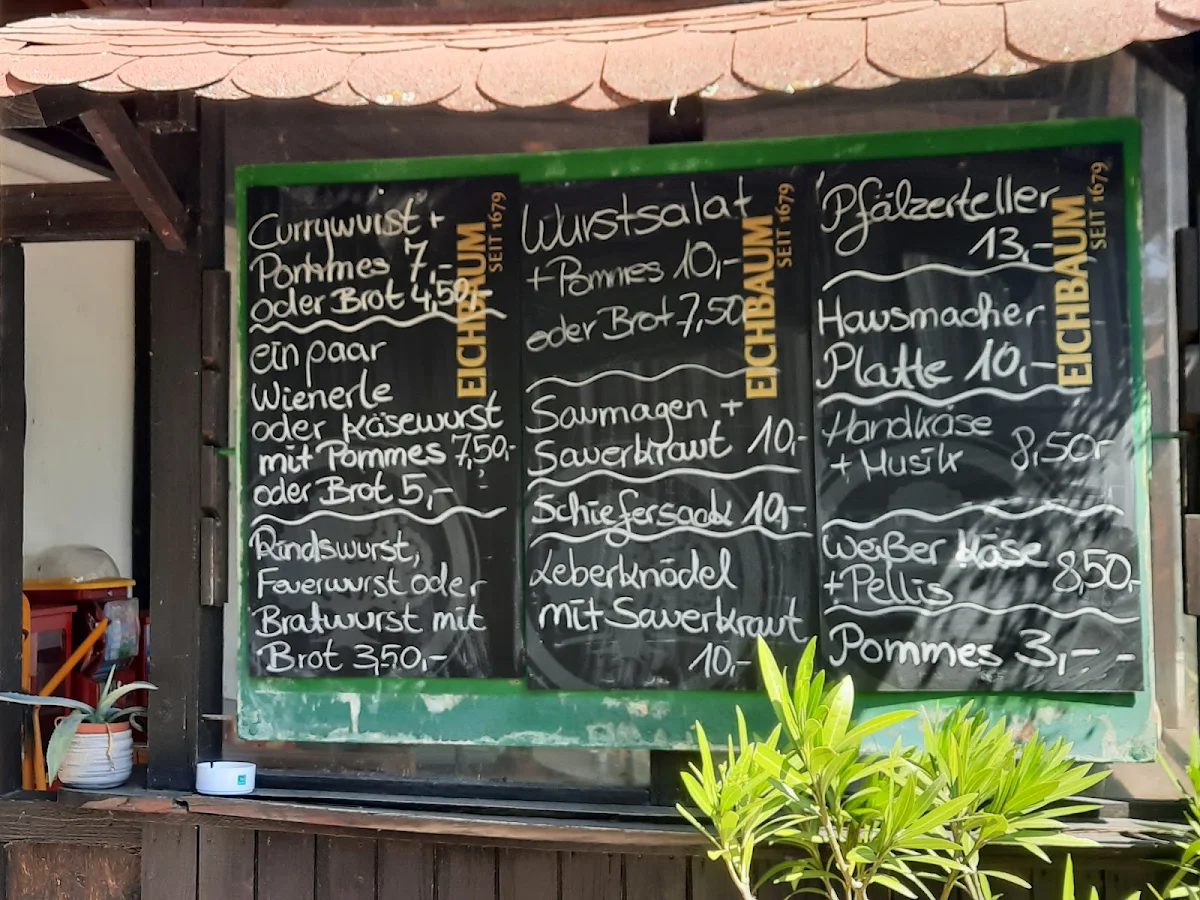 Currywurst +
Pommes 7,-
oder Brot 4,50,-
ein paar
Wienerle
oder Käsewurst
mit Pommes 7,50,-
oder Brot 5,-
Rindswurst,
Feuerwurst oder
Bratwurst mit
Brot 3,50,-
EICHBAUM
SEIT 1679
Wurstsalat
+ Pommes 10,-
oder Brot 7,50
Saumagen +
Sauerkraut 10,-
Schiefersack 10,-
Leberknödel
mit Sauerkraut
10,-
EICHBAUM
SEIT 1679
Pfälzerteller
13,-
Hausmacher
Platte 10,-
Handkäse
+ Musik 8,50,-
Weißer Käse
+ Pellis 8,50,-
Pommes 3,- -
EICHBAUM
SEIT 1679